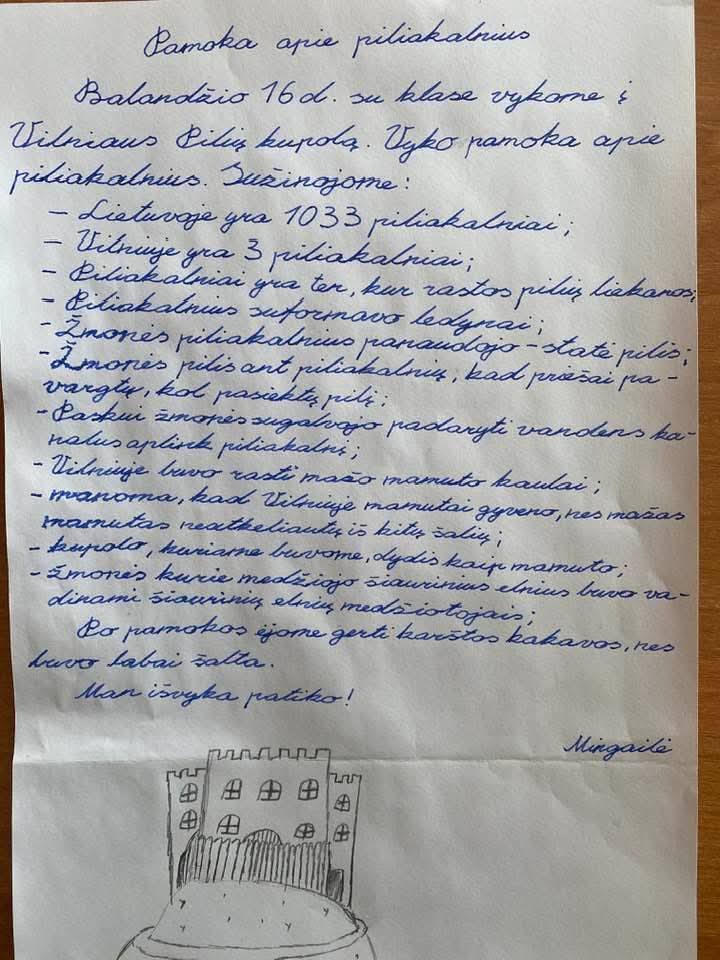 Pamoka apie piliakalnius
Balandžio 16 d. su klase vykome į
Vilniaus Pilių kupolą. Vyko pamoka apie
piliakalnius. Sužinojome:
- Lietuvoje yra 1033 piliakalniai;
- Vilniuje yra 3 piliakalniai;
- Piliakalniai yra ten, kur rastos pilių liekanos;
- Piliakalnius suformavo ledynai;
- Žmonės piliakalnius panaudojo - statė pilis;
- Žmonės pilis ant piliakalnių, kad priešai pa-
vargtų, kol pasiektų pilį;
- Paskui žmonės sugalvojo padaryti vandens ka-
nalus aplink piliakalnį;
- Vilniuje buvo rasti mažo mamuto kaulai;
- manoma, kad Vilniuje mamutai gyveno, nes mažas
mamutas neatkeliautų iš kitų šalių;
- kupolo, kuriame buvome, dydis kaip mamuto;
- žmonės kurie medžiojo šiaurinius elnius buvo va-
dinami šiaurinių elnių medžiotojais;
Po pamokos ėjome gerti karštos kakavos, nes
buvo labai šalta.
Man išvyka patiko!
Mingailė